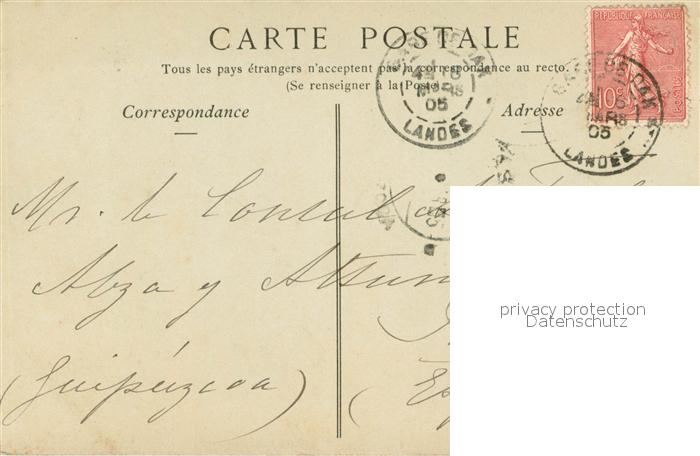 CARTE POSTALE
Tous les pays étrangers n'acceptent pas la correspondance au recto.
(Se renseigner à la Poste)
Correspondance
Adresse
REPUBLIQUE FRANÇAISE
10c
GARE DE DAX
MARS
05
LANDES
GARE DE DAX
MARS
05
LANDES
Mr. le Consul
Alza y
(Guipúzcoa)
privacy protection
Datenschutz